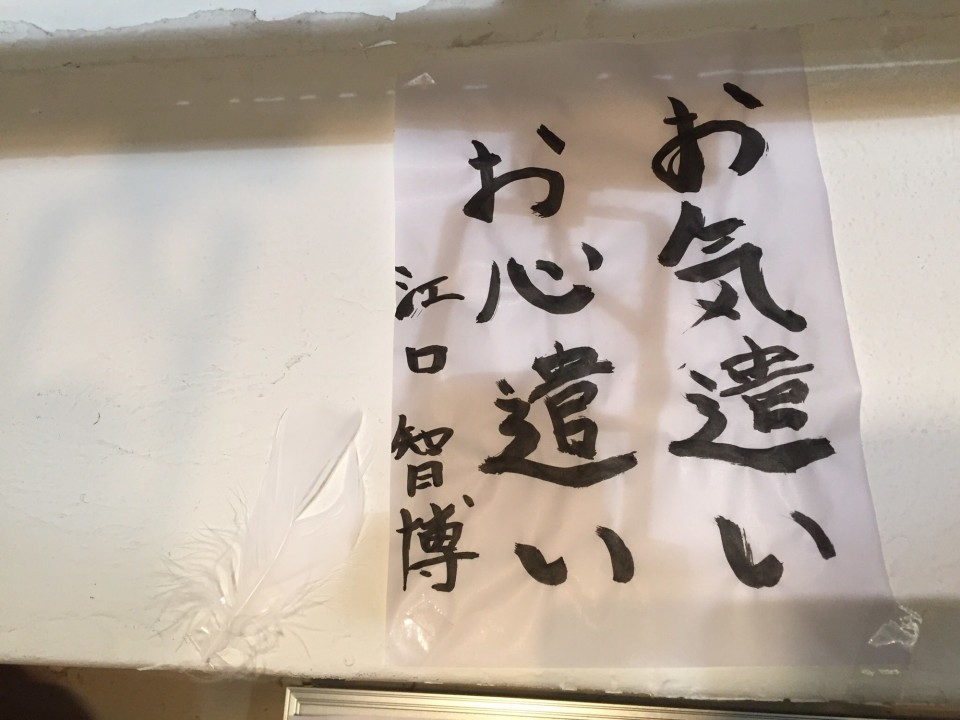 お気遣い
お心遣い
江口智博